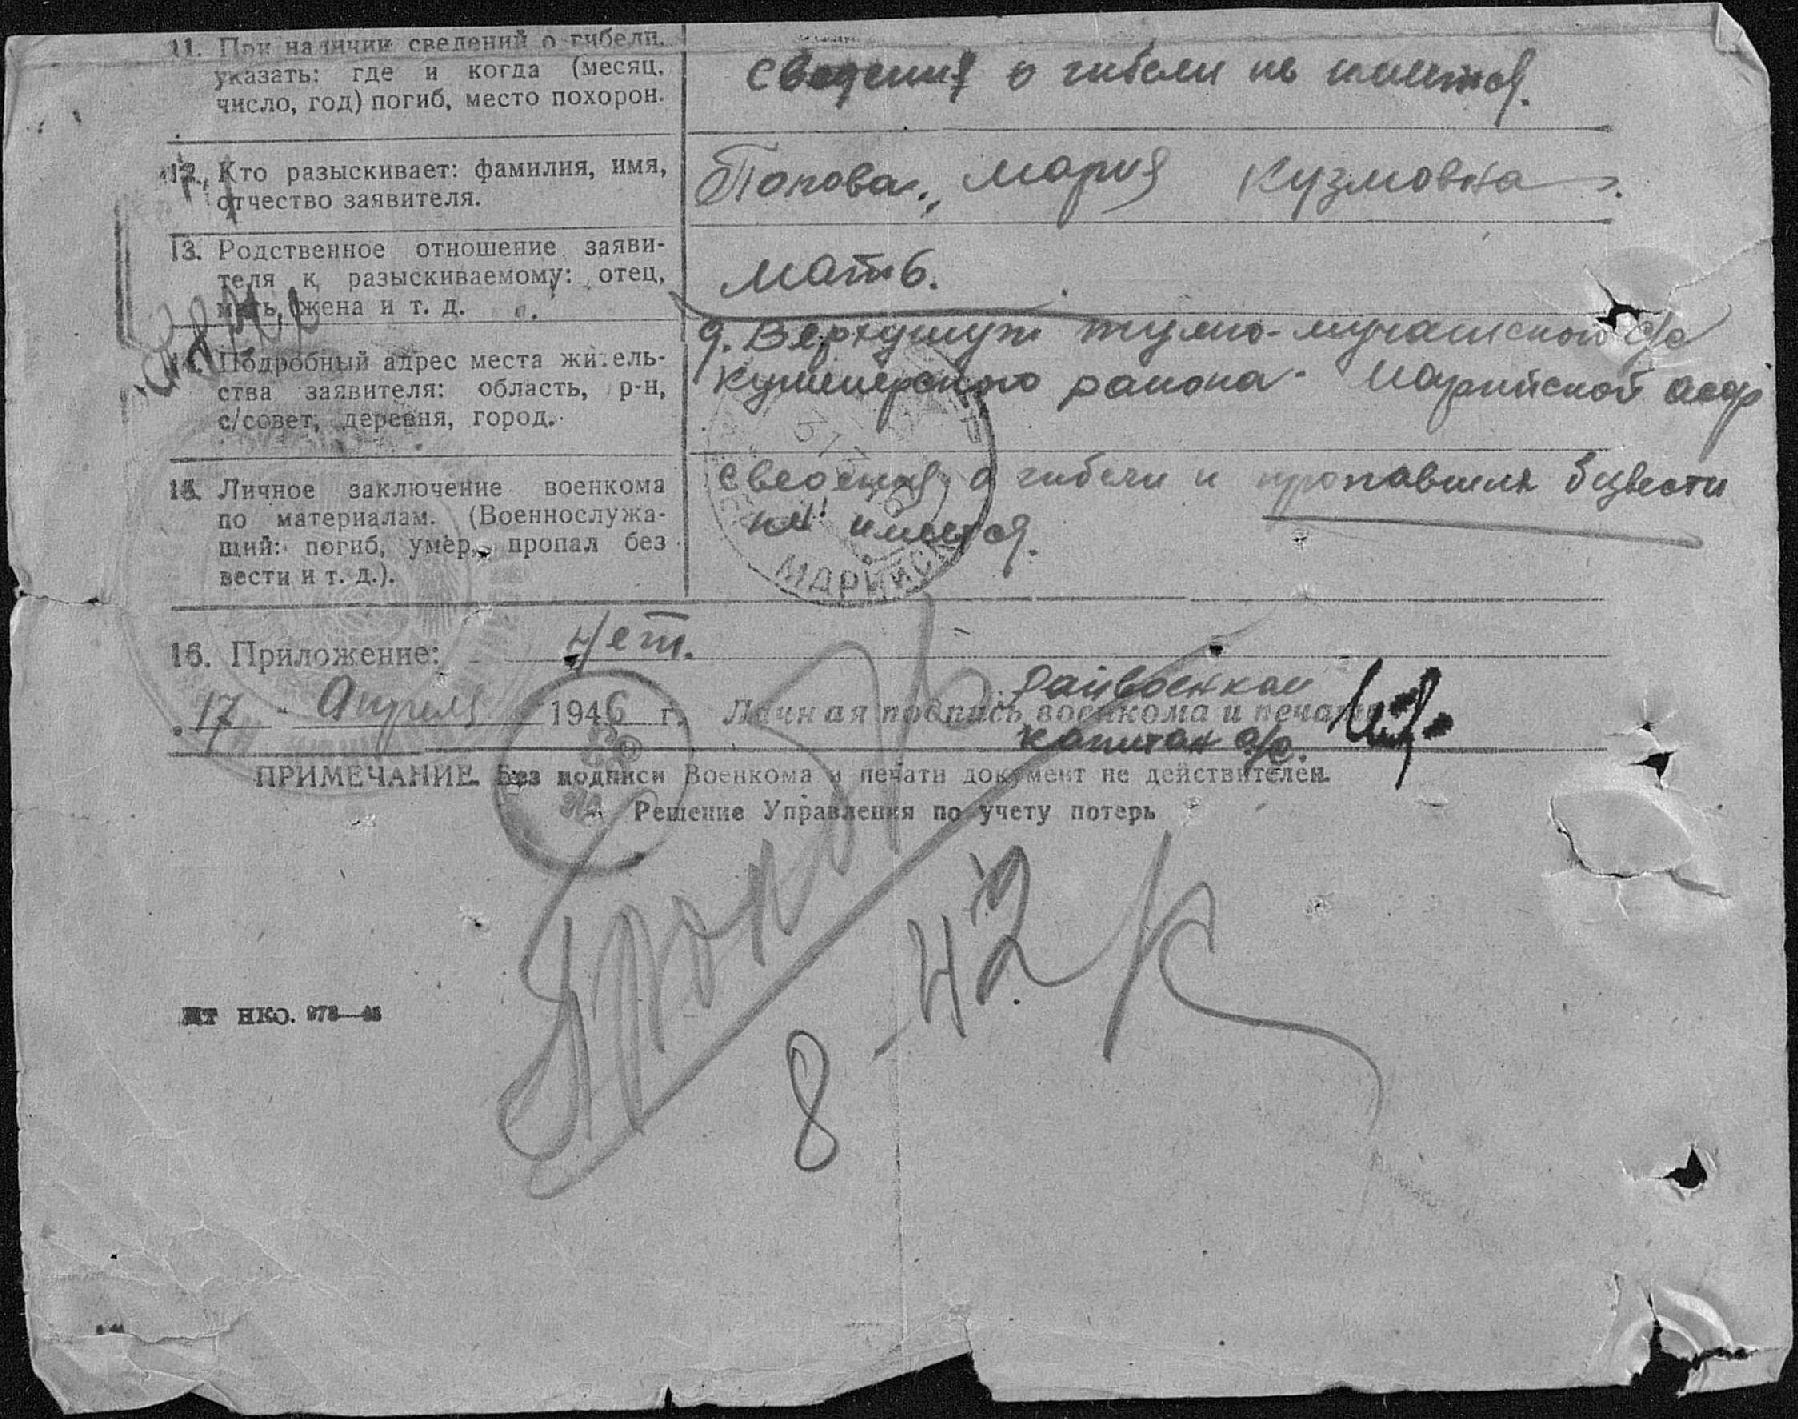 11. При наличии сведений о гибели,
указать: где и когда (месяц,
число, год) погиб, место похорон.
сведения о гибели не имеется.
12. Кто разыскивает: фамилия, имя,
отчество заявителя.
Попова, Мария Кузмовна.
13. Родственное отношение заяви-
теля к разыскиваемому: отец,
мать, жена и т. д.
мать.
14. Подробный адрес места житель-
ства заявителя: область, р-н,
с/совет, деревня, город.
д. с/с
района Марийской асср
15. Личное заключение военкома
по материалам. (Военнослужа-
щий: погиб, умер, пропал без
вести и т. д.).
сведения о гибели и пропавших
не имеется.
МАРИЙСК
16. Приложение: нет.
райвоенком
17 Апреля 1946 г. Личная подпись военкома и печать
капитан а/с.
ПРИМЕЧАНИЕ. Без подписи Военкома и печати документ не действителен.
Решение Управления по учету потерь
8-42
НКО.